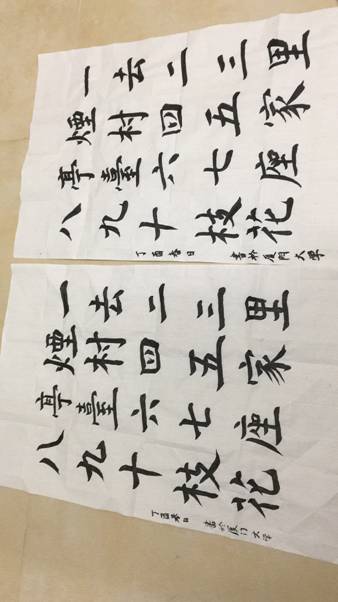 一去二三里
煙村四五家
亭臺六七座
八九十枝花
丁酉春日 書於厦門大學
一去二三里
煙村四五家
亭臺六七座
八九十枝花
丁酉春日 書於厦门大学